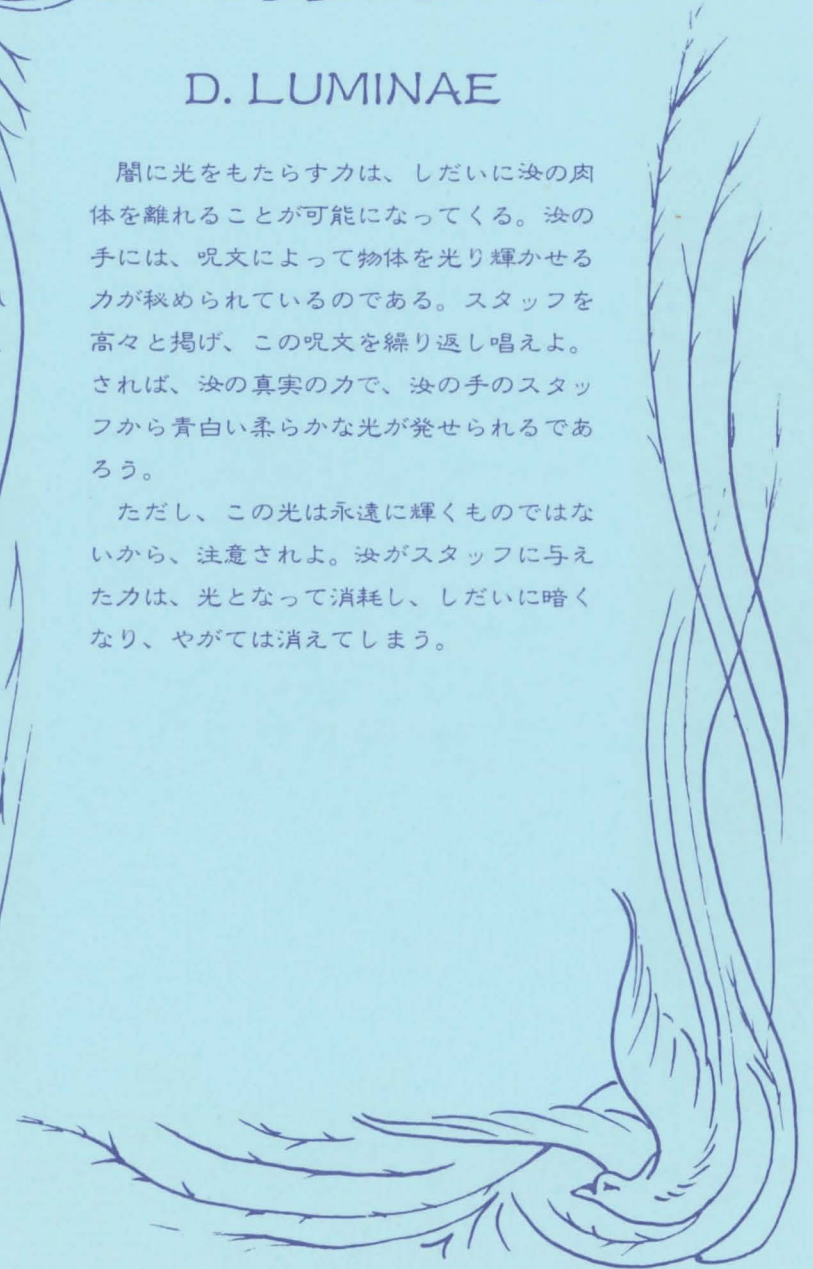 D. LUMINAE
闇に光をもたらす力は、しだいに汝の肉
体を離れることが可能になってくる。汝の
手には、呪文によって物体を光り輝かせる
力が秘められているのである。スタッフを
高々と掲げ、この呪文を繰り返し唱えよ。
されば、汝の真実の力で、汝の手のスタッ
フから青白い柔らかな光が発せられるであ
ろう。
ただし、この光は永遠に輝くものではな
いから、注意されよ。汝がスタッフに与え
た力は、光となって消耗し、しだいに暗く
なり、やがては消えてしまう。